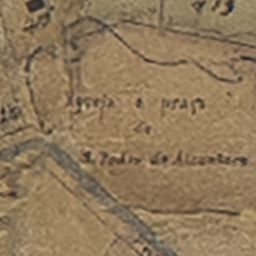 Igreja e praça
de
S. Pedro de Alcantara